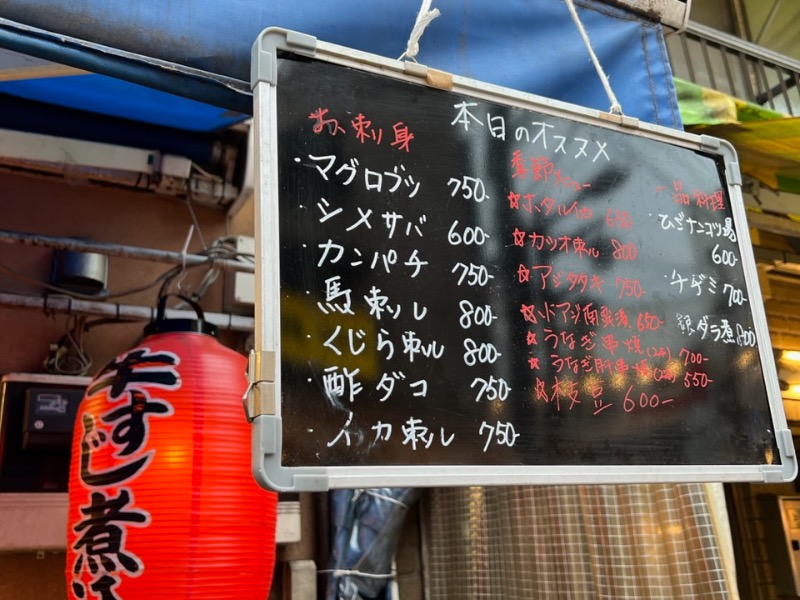 本日のオススメ
お刺身
・マグロブツ 750-
・シメサバ 600-
・カンパチ 750-
・馬刺し 800-
・くじら刺し 800-
・酢ダコ 750-
・イカ刺し 750-
季節メニュー
☆ホタルイカ 650
☆カツオ刺し 800
☆アジタタキ 750-
650-
☆うなぎ串焼(2本) 700-
☆うなぎ肝串焼(2本) 550-
☆枝豆 600-
一品料理
・ひざナンコツ揚
600-
・チヂミ 700-
銀ダラ煮 800-
牛すじ煮込